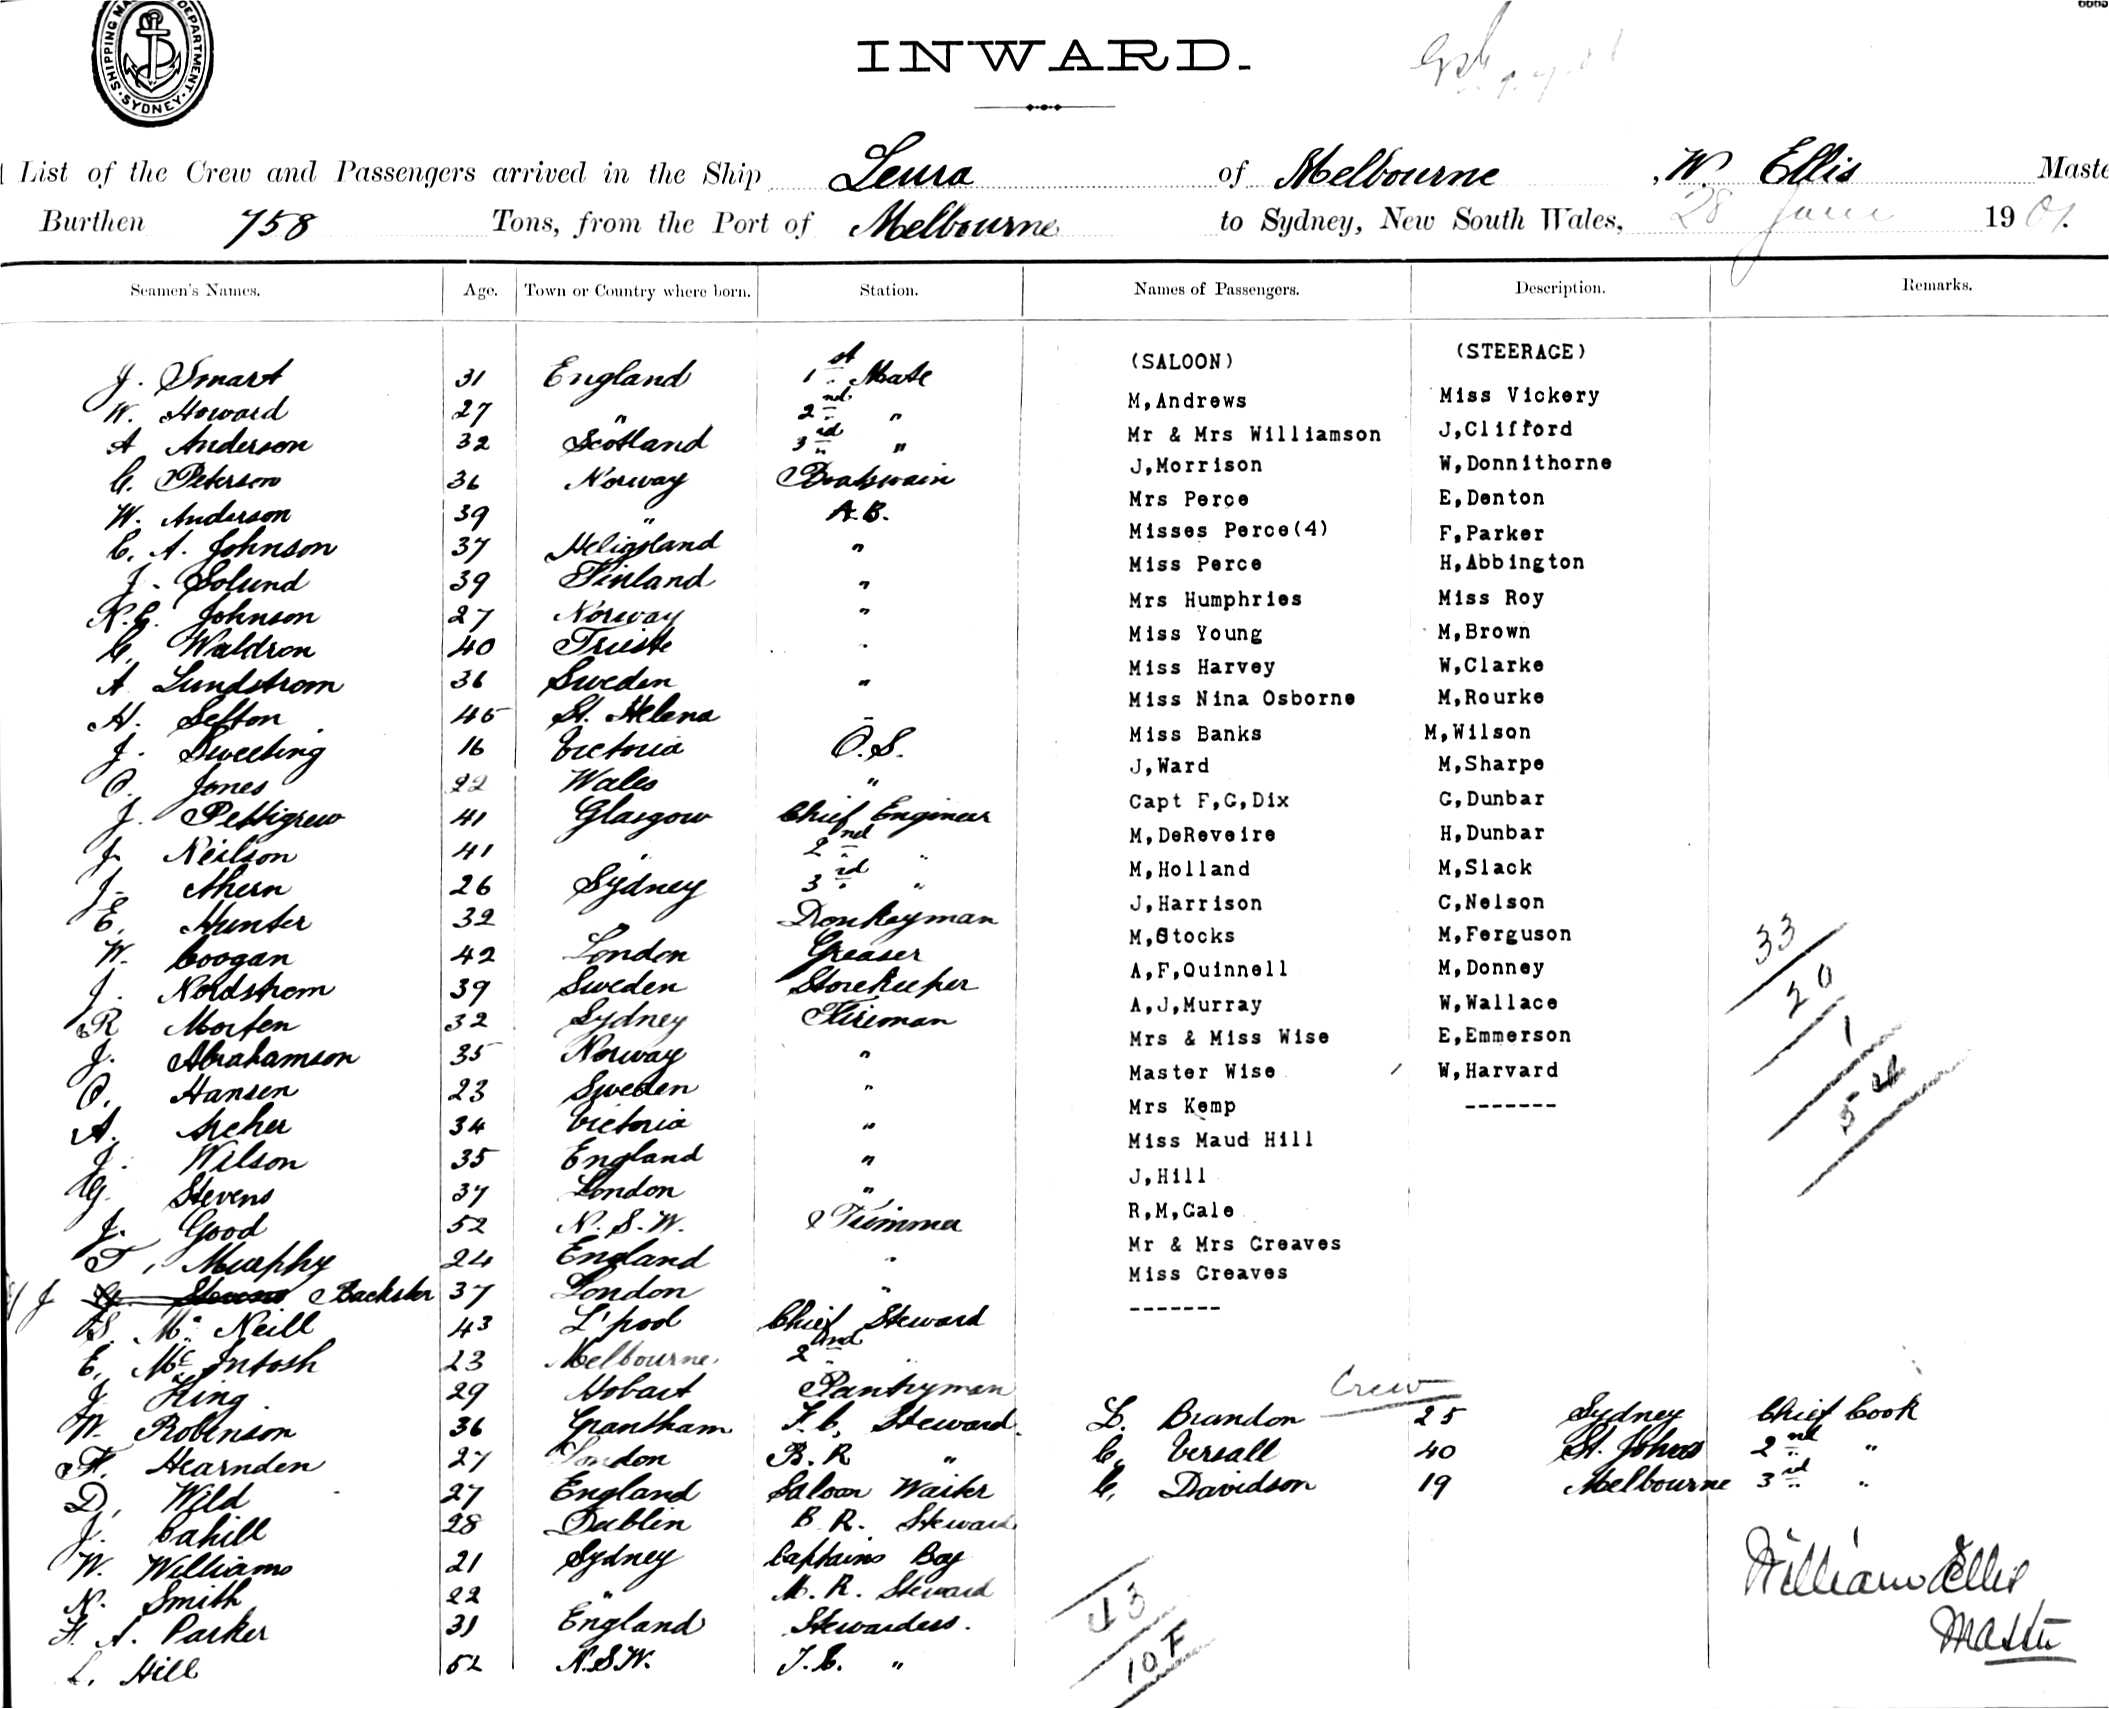 SHIPPING MA DEPARTMENT
SYDNEY
INWARD.
List of the Crew and Passengers arrived in the Ship Leura of Melbourne, W. Ellis Maste
Burthen 758 Tons, from the Port of Melbourne to Sydney, New South Wales, 28 June 1901.
Seamen's Names. Age. Town or Country where born. Station. Names of Passengers. Description. Remarks.
(SALOON) (STEERAGE)
J. Smart 31 England 1st Mate M,Andrews Miss Vickery
W. Howard 27 " 2nd " Mr & Mrs Williamson J,Clifford
A Anderson 32 Scotland 3rd " J,Morrison W,Donnithorne
C. Peterson 36 Norway Boatswain Mrs Perce E,Denton
W. Anderson 39 " A.B. Misses Perce(4) F,Parker
C. A. Johnson 37 Heligoland " Miss Perce H,Abbington
J. Solund 39 Finland " Mrs Humphries Miss Roy
K.G. Johnson 27 Norway " Miss Young M,Brown
C. Waldron 40 Trieste " Miss Harvey W,Clarke
A Lundstrom 36 Sweden " Miss Nina Osborne M,Rourke
H. Sefton 45 St. Helena " Miss Banks M,Wilson
J. Sweeting 16 Victoria O.S. J,Ward M,Sharpe
O. Jones 22 Wales " Capt F,G,Dix G,Dunbar
J. Pettigrew 41 Glasgow Chief Engineer M,DeReveire H,Dunbar
J. Neilson 41 " 2nd " M,Holland M,Slack
J. Ahern 26 Sydney 3rd " J,Harrison C,Nelson
E. Hunter 32 " Donkeyman M,Stocks M,Ferguson
W. Coogan 42 London Greaser A,F,Quinnell M,Donney
J. Nordstrom 39 Sweden Storekeeper A,J,Murray W,Wallace
R Morten 32 Sydney Fireman Mrs & Miss Wise E,Emmerson
J. Abrahamson 35 Norway " Master Wise W,Harvard
O. Hansen 23 Sweden " Mrs Kemp -------
A. Archer 34 Victoria " Miss Maud Hill
J. Wilson 35 England " J,Hill
G. Stevens 37 London " R,M,Gale
J. Good 52 N.S.W. Trimmer Mr & Mrs Greaves
T. Murphy 24 England " Miss Greaves
J G. Stevens Backster 37 London " -------
S. McNeill 43 L'pool Chief Steward
E. McIntosh 23 Melbourne 2nd "
J. King 29 Hobart Pantryman
W. Robinson 36 Grantham F.C. Steward.
F. Hearnden 27 London B.R "
D. Wild 27 England Saloon Waiter
J. Cahill 28 Dublin B.R. Steward
W. Williams 21 Sydney Captains Boy
N. Smith 22 " M.R. Steward
H. A. Parker 31 England Stewardess.
L. Hill 52 N.S.W. T.C. "
33
20
1
54
Crew
L. Brandon 25 Sydney Chief Cook
C. Versall 40 St. Johns 2nd "
C. Davidson 19 Melbourne 3rd "
43
10 F
William Ellis
Master